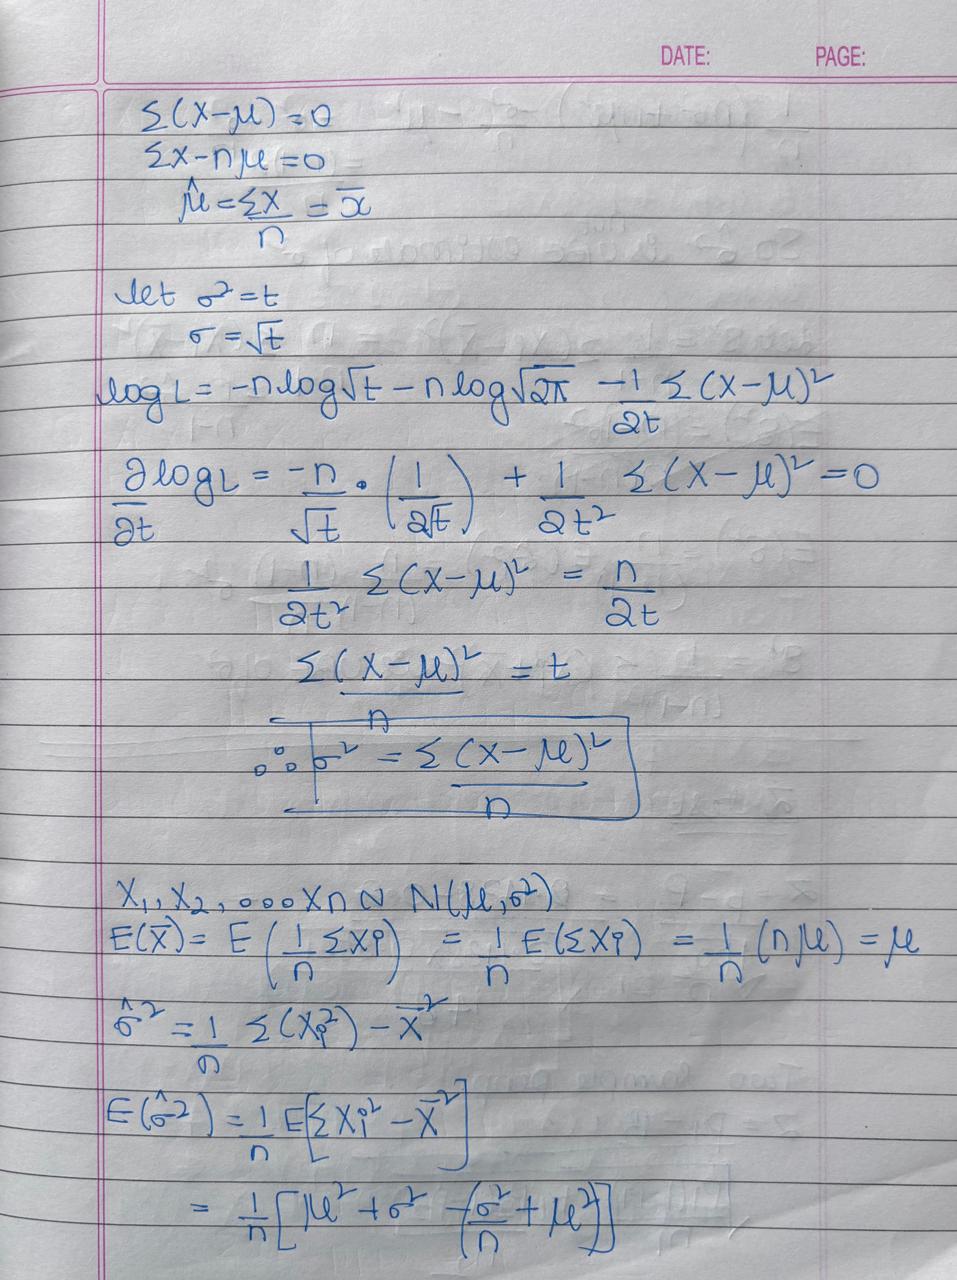 DATE: PAGE:
Σ(X-μ)=0
Σx-nμ=0
μ̂=Σx/n = x̄
let σ²=t
σ=√t
log L= -n log√t - n log√2π -1/2t Σ(X-μ)²
∂/∂t log L = -n/√t · (1/2√t) + 1/2t² Σ(X-μ)²=0
1/2t² Σ(X-μ)² = n/2t
Σ(X-μ)²/n = t
∴ σ² = Σ(X-μ)²/n
X₁, X₂, ...Xn ~ N(μ,σ²)
E(X̄)= E(1/n ΣXi) = 1/n E(ΣXi) = 1/n (nμ) = μ
σ̂² = 1/n Σ(Xi²) - X̄²
E(σ̂2) = 1/n E[ΣXi² - X̄²]
= 1/n [μ²+σ² -(σ²/n + μ²)]